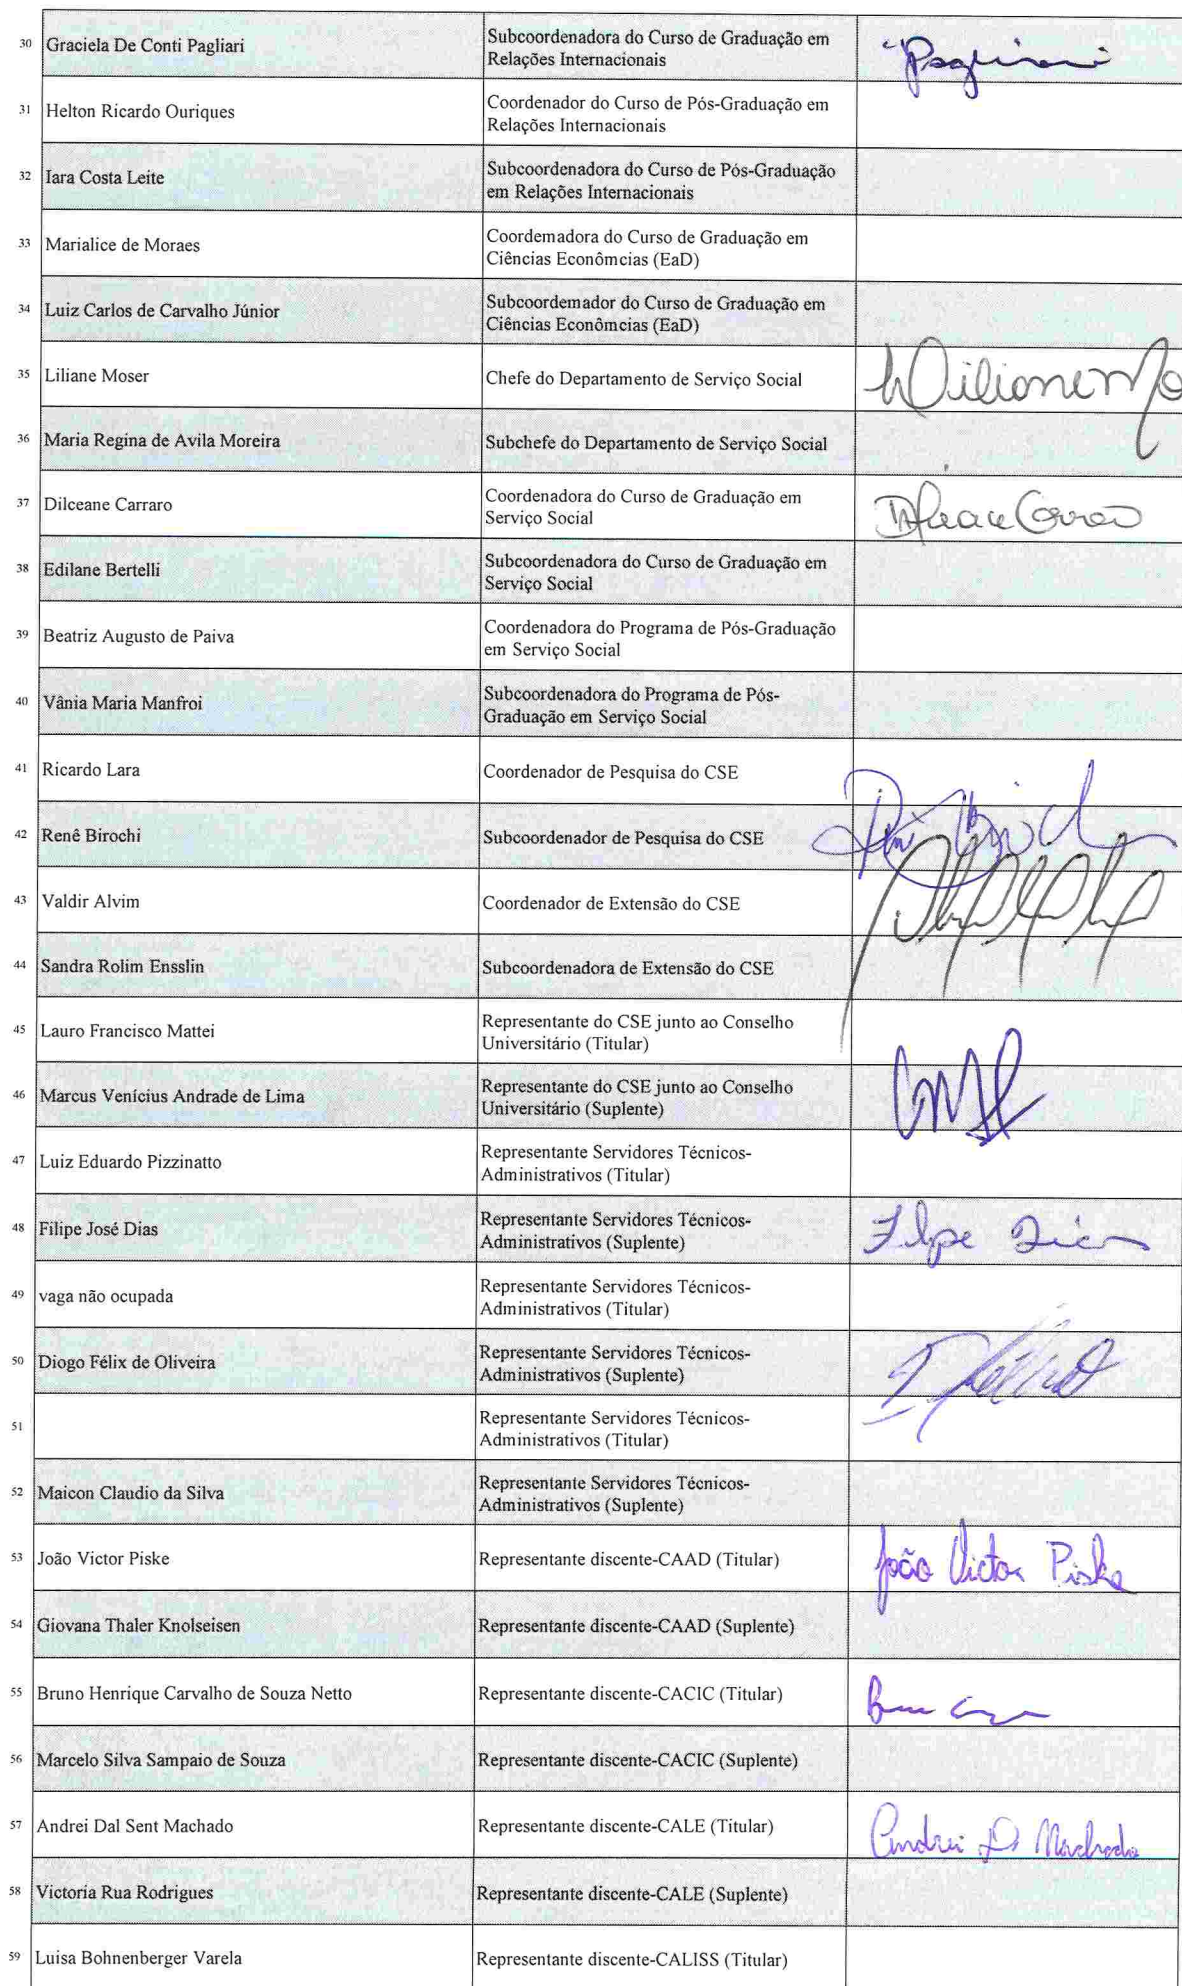 30 Graciela De Conti Pagliari Subcoordenadora do Curso de Graduação em
Relações Internacionais
31 Helton Ricardo Ouriques Coordenador do Curso de Pós-Graduação em
Relações Internacionais
32 Iara Costa Leite Subcoordenadora do Curso de Pós-Graduação
em Relações Internacionais
33 Marialice de Moraes Coordemadora do Curso de Graduação em
Ciências Econômcias (EaD)
34 Luiz Carlos de Carvalho Júnior Subcoordemador do Curso de Graduação em
Ciências Econômcias (EaD)
35 Liliane Moser Chefe do Departamento de Serviço Social
36 Maria Regina de Avila Moreira Subchefe do Departamento de Serviço Social
37 Dilceane Carraro Coordenadora do Curso de Graduação em
Serviço Social
38 Edilane Bertelli Subcoordenadora do Curso de Graduação em
Serviço Social
39 Beatriz Augusto de Paiva Coordenadora do Programa de Pós-Graduação
em Serviço Social
40 Vânia Maria Manfroi Subcoordenadora do Programa de Pós-
Graduação em Serviço Social
41 Ricardo Lara Coordenador de Pesquisa do CSE
42 Renê Birochi Subcoordenador de Pesquisa do CSE
43 Valdir Alvim Coordenador de Extensão do CSE
44 Sandra Rolim Ensslin Subcoordenadora de Extensão do CSE
45 Lauro Francisco Mattei Representante do CSE junto ao Conselho
Universitário (Titular)
46 Marcus Venícius Andrade de Lima Representante do CSE junto ao Conselho
Universitário (Suplente)
47 Luiz Eduardo Pizzinatto Representante Servidores Técnicos-
Administrativos (Titular)
48 Filipe José Dias Representante Servidores Técnicos-
Administrativos (Suplente)
49 vaga não ocupada Representante Servidores Técnicos-
Administrativos (Titular)
50 Diogo Félix de Oliveira Representante Servidores Técnicos-
Administrativos (Suplente)
51 Representante Servidores Técnicos-
Administrativos (Titular)
52 Maicon Claudio da Silva Representante Servidores Técnicos-
Administrativos (Suplente)
53 João Victor Piske Representante discente-CAAD (Titular) João Victor Piske
54 Giovana Thaler Knolseisen Representante discente-CAAD (Suplente)
55 Bruno Henrique Carvalho de Souza Netto Representante discente-CACIC (Titular)
56 Marcelo Silva Sampaio de Souza Representante discente-CACIC (Suplente)
57 Andrei Dal Sent Machado Representante discente-CALE (Titular) Andrei D. Machado
58 Victoria Rua Rodrigues Representante discente-CALE (Suplente)
59 Luisa Bohnenberger Varela Representante discente-CALISS (Titular)